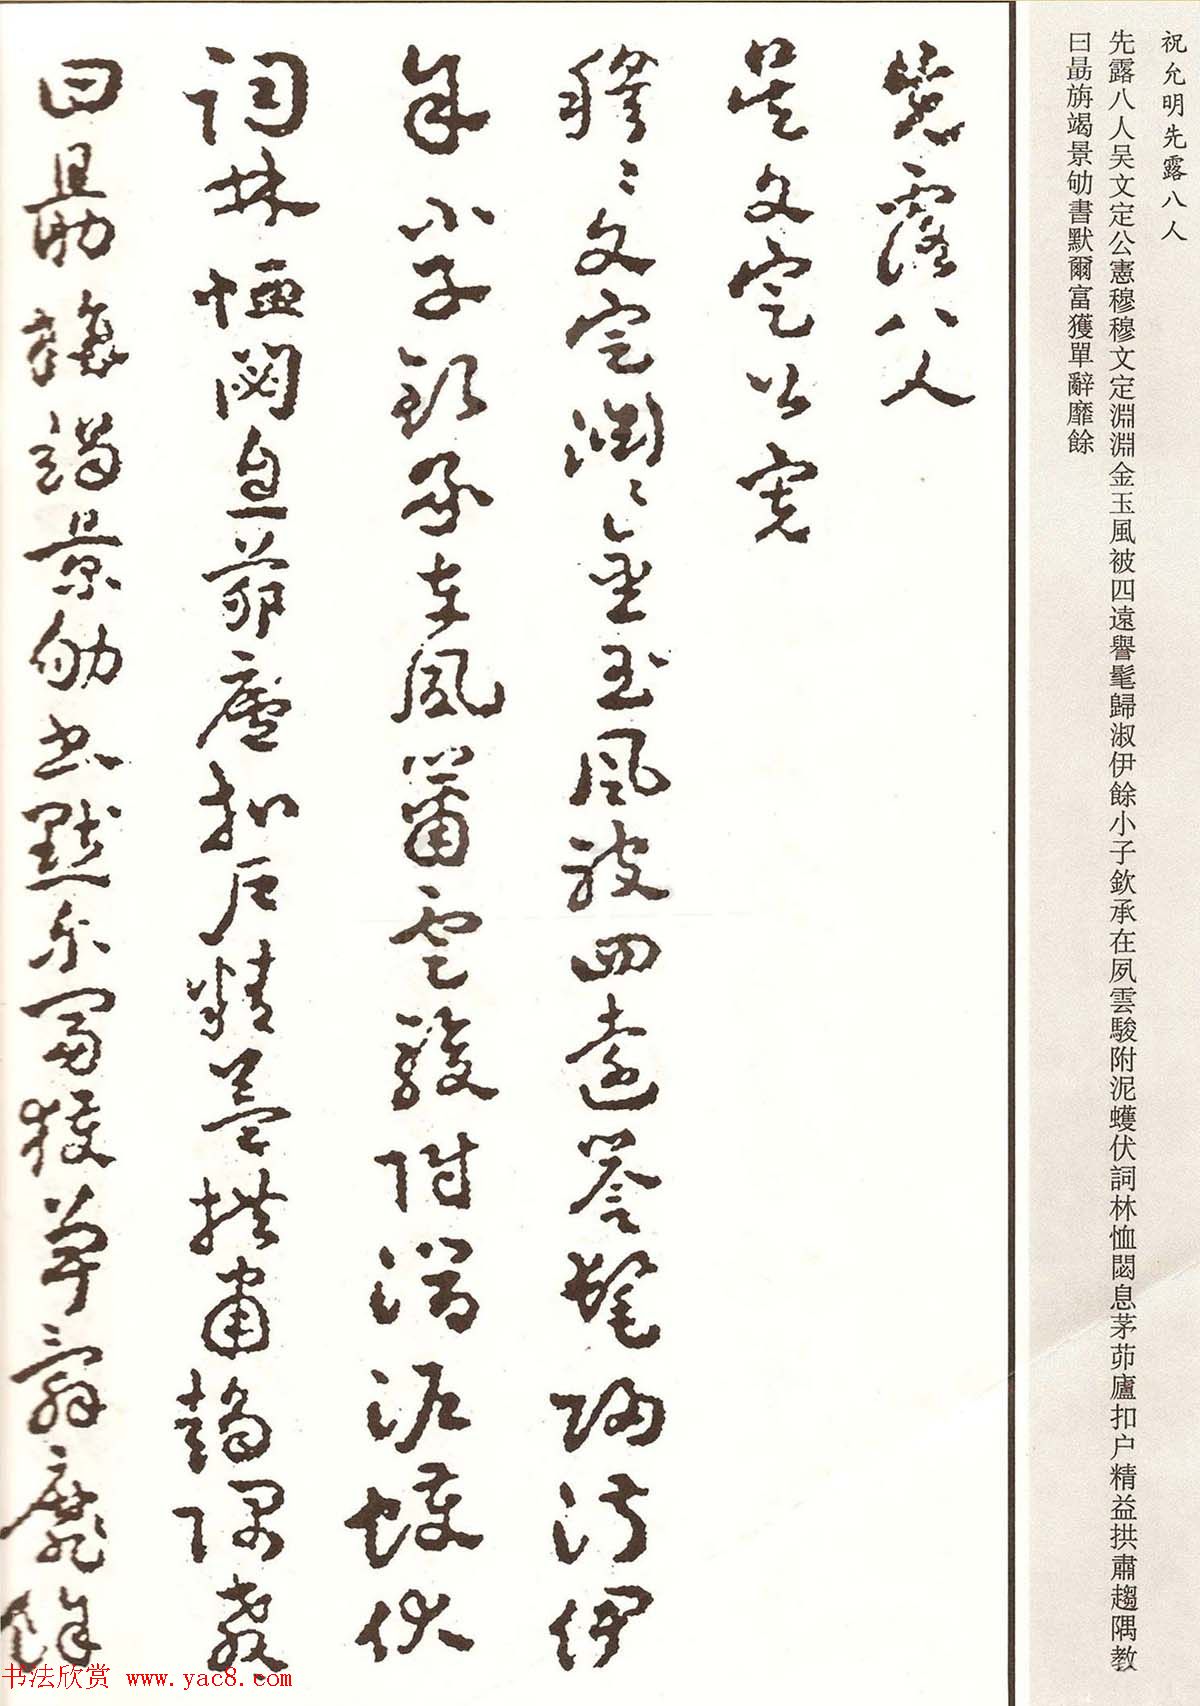 祝允明先露八人
先露八人吴文定公憲穆穆文定淵淵金玉風被四遠譽髦歸淑伊餘小子欽承在夙雲駿附泥蠖伏詞林恤閟息茅茆廬扣户精益拱肅趨隅教
曰勗旃竭景劬書默爾富獲單辭靡餘
先露八人
吴文定公寬
穆〻文定淵〻金玉風被四遠譽髦歸淑伊
余小子欽承在夙雲駿附泥蠖伏
詞林恤閟息茆廬扣户精益拱肅趨隅教
曰勗旃竭景劬書默爾富獲單辭靡餘
书法欣赏 www.yac8.com